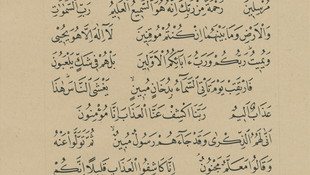 مُرْسِلِينَ رَحْمَةً مِنْ رَبِّكَ إِنَّهُ هُوَ السَّمِيعُ الْعَلِيمُ رَبِّ السَّمٰوَاتِ
وَالْاَرْضِ وَمَا بَيْنَهُمَا اِنْ كُنْتُمْ مُوقِنِينَ لَا اِلٰهَ اِلَّا هُوَ يُحْيِى
وَيُمِيتُ رَبُّكُمْ وَرَبُّ اٰبَائِكُمُ الْاَوَّلِينَ بَلْ هُمْ فِى شَكٍّ يَلْعَبُونَ
فَارْتَقِبْ يَوْمَ تَأْتِى السَّمَاءُ بِدُخَانٍ مُبِينٍ يَغْشَى النَّاسَ هٰذَا
عَذَابٌ اَلِيمٌ رَبَّنَا اكْشِفْ عَنَّا الْعَذَابَ اِنَّا مُؤْمِنُونَ
اَنّٰى لَهُمُ الذِّكْرٰى وَقَدْ جَاءَهُمْ رَسُولٌ مُبِينٌ ثُمَّ تَوَلَّوْا عَنْهُ
وَقَالُوا مُعَلَّمٌ مَجْنُونٌ اِنَّا كَاشِفُوا الْعَذَابِ قَلِيلًا اِنَّكُمْ